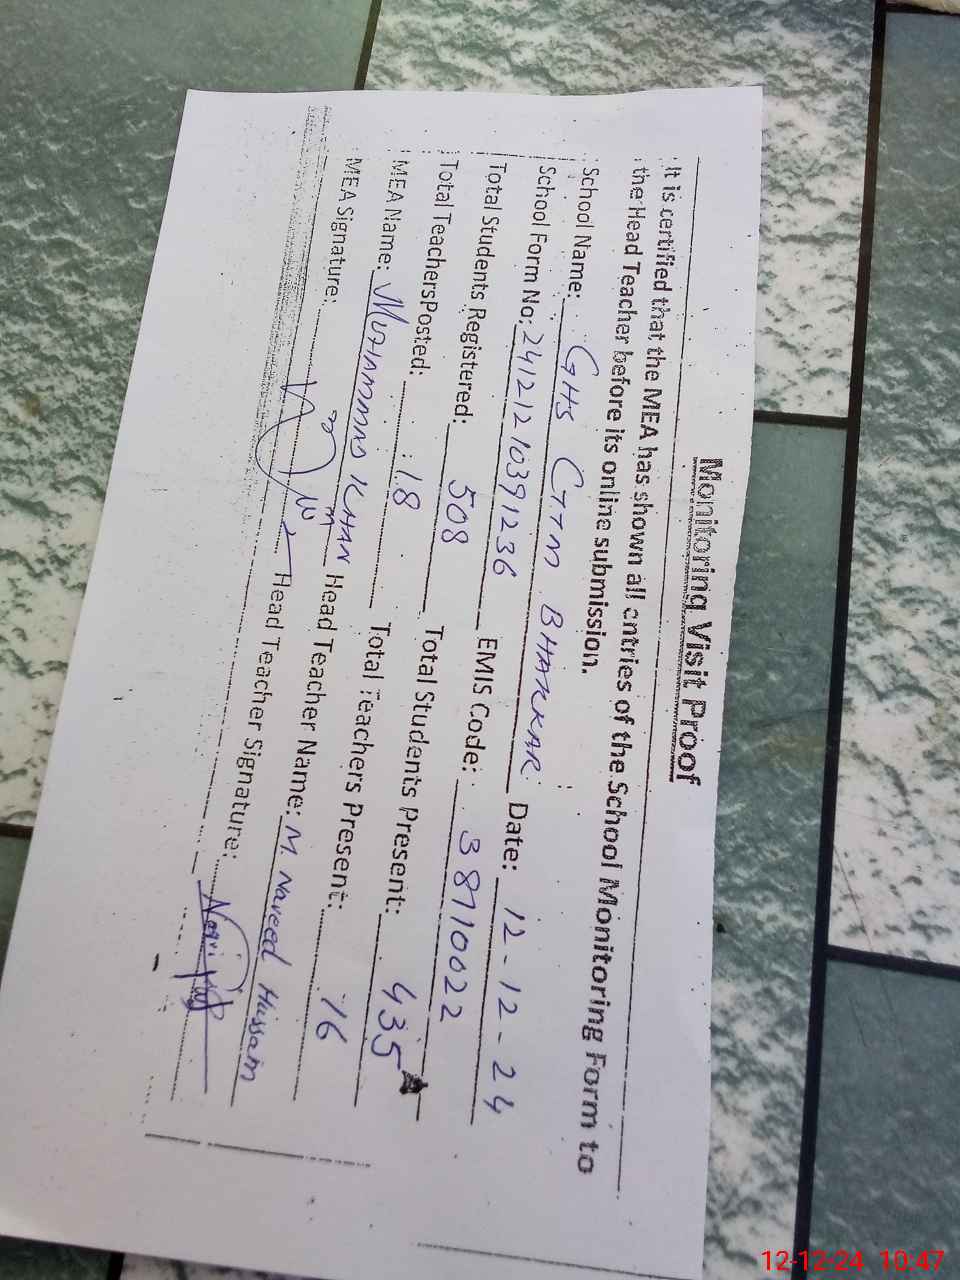 Monitoring Visit Proof
It is certified that the MEA has shown all entries of the School Monitoring Form to
the Head Teacher before its online submission.
School Name: GHS CTTM BHAKKAR
School Form No: 24121210391236 Date: 12-12-24
Total Students Registered: 508 EMIS Code: 38710022
Total TeachersPosted: 18 Total Students Present: 435
MEA Name: KHAN Total Teachers Present: 16
MEA Signature: Head Teacher Name: M. Naveed Hussain
Head Teacher Signature:
12-12-24 10:47